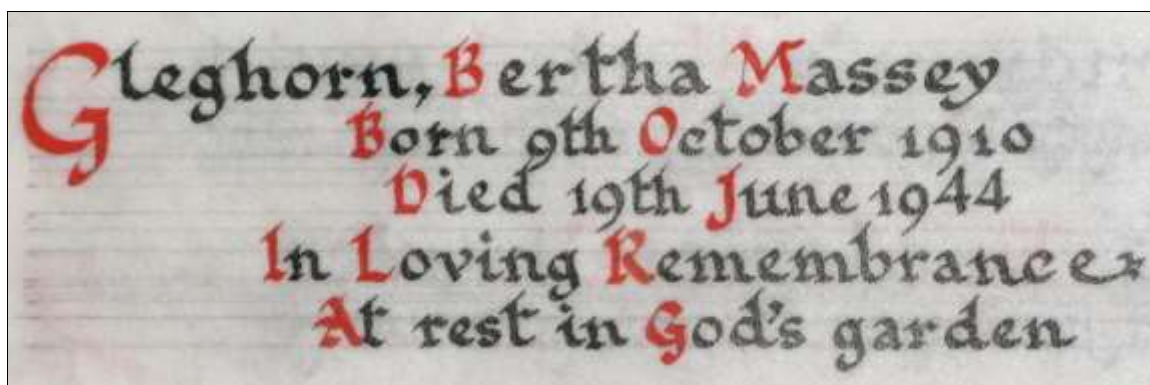 Gleghorn, Bertha Massey
Born 9th October 1910
Died 19th June 1944
In Loving Remembrance
At rest in God's garden